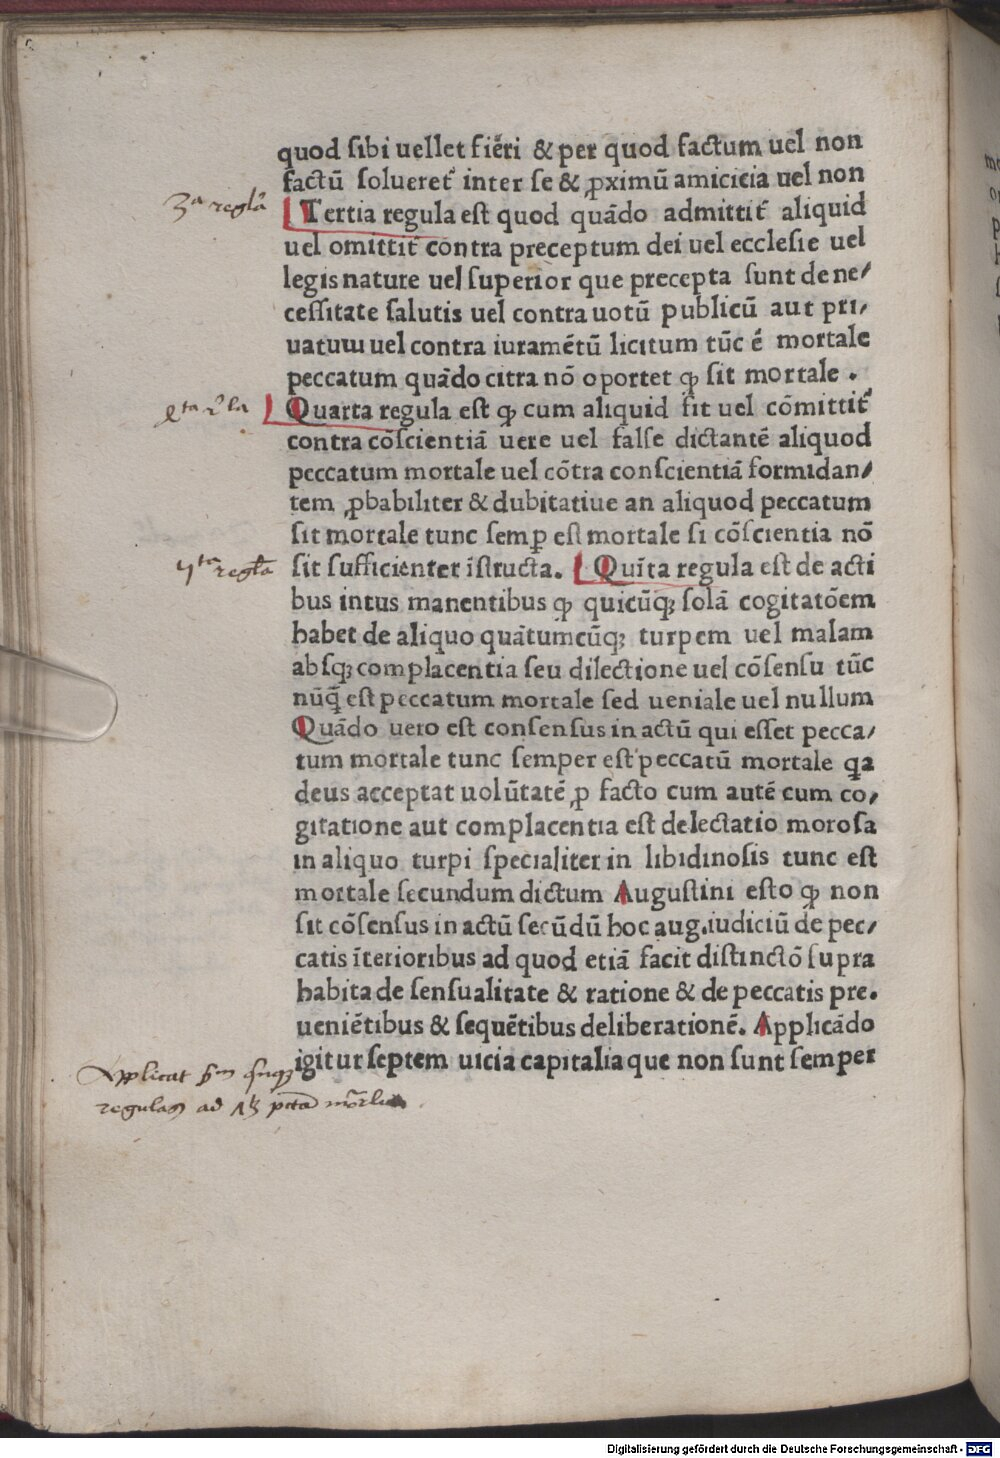 quod ſibi uellet fieri & per quod factum uel non
factū ſolueret᷑ inter ſe & ꝓximū amicicia uel non
3ª regla
Tertia regula eſt quod quādo admittit᷑ aliquid
uel omittit᷑ contra preceptum dei uel eccleſie uel
legis nature uel ſuperior que precepta ſunt de ne/
ceſſitate ſalutis uel contra uotū publicū aut pri/
uatum uel contra iuramētū licitum tūc ē mortale
peccatum quādo citra nō oportet ꝙ ſit mortale .
Quarta regula eſt ꝙ cum aliquid fit uel cōmittit᷑
contra cōſcientiā uere uel falſe dictantē aliquod
peccatum mortale uel cōtra conſcientiā formidan/
tem ꝓbabiliter & dubitatiue an aliquod peccatum
ſit mortale tunc ſemꝑ eſt mortale ſi cōſcientia nō
ſit ſufficienter īſtructa. Quīta regula eſt de acti
bus intus manentibus ꝙ quicūqꝫ ſolā cogitatōem
habet de aliquo quātumcūqꝫ turpem uel malam
abſqꝫ complacentia ſeu dilectione uel cōſenſu tūc
nūq̄ eſt peccatum mortale ſed ueniale uel nullum
Quādo uero eſt conſenſus in actū qui eſſet pecca/
tum mortale tunc ſemper eſt peccatū mortale qa
deus acceptat uolūtatē ꝓ facto cum autē cum co/
gitatione aut complacentia eſt delectatio moroſa
in aliquo turpi ſpecialiter in libidinoſis tunc eſt
mortale ſecundum dictum Auguſtini eſto ꝙ non
ſit cōſenſus in actū ſecūdū hoc aug.iudiciū de pec/
catis īterioribus ad quod etiā facit diſtinctō ſupra
habita de ſenſualitate & ratione & de peccatis pre.
ueniētibus & ſequētibus deliberationē. Applicādo
igitur ſeptem uicia capitalia que non ſunt ſemper
Applicat
regulas ad
Digitalisierung gefördert durch die Deutsche Forschungsgemeinschaft - DFG